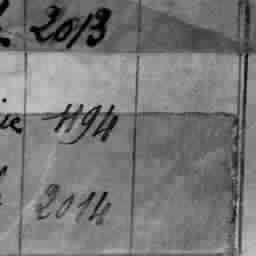 2013
1194
2014